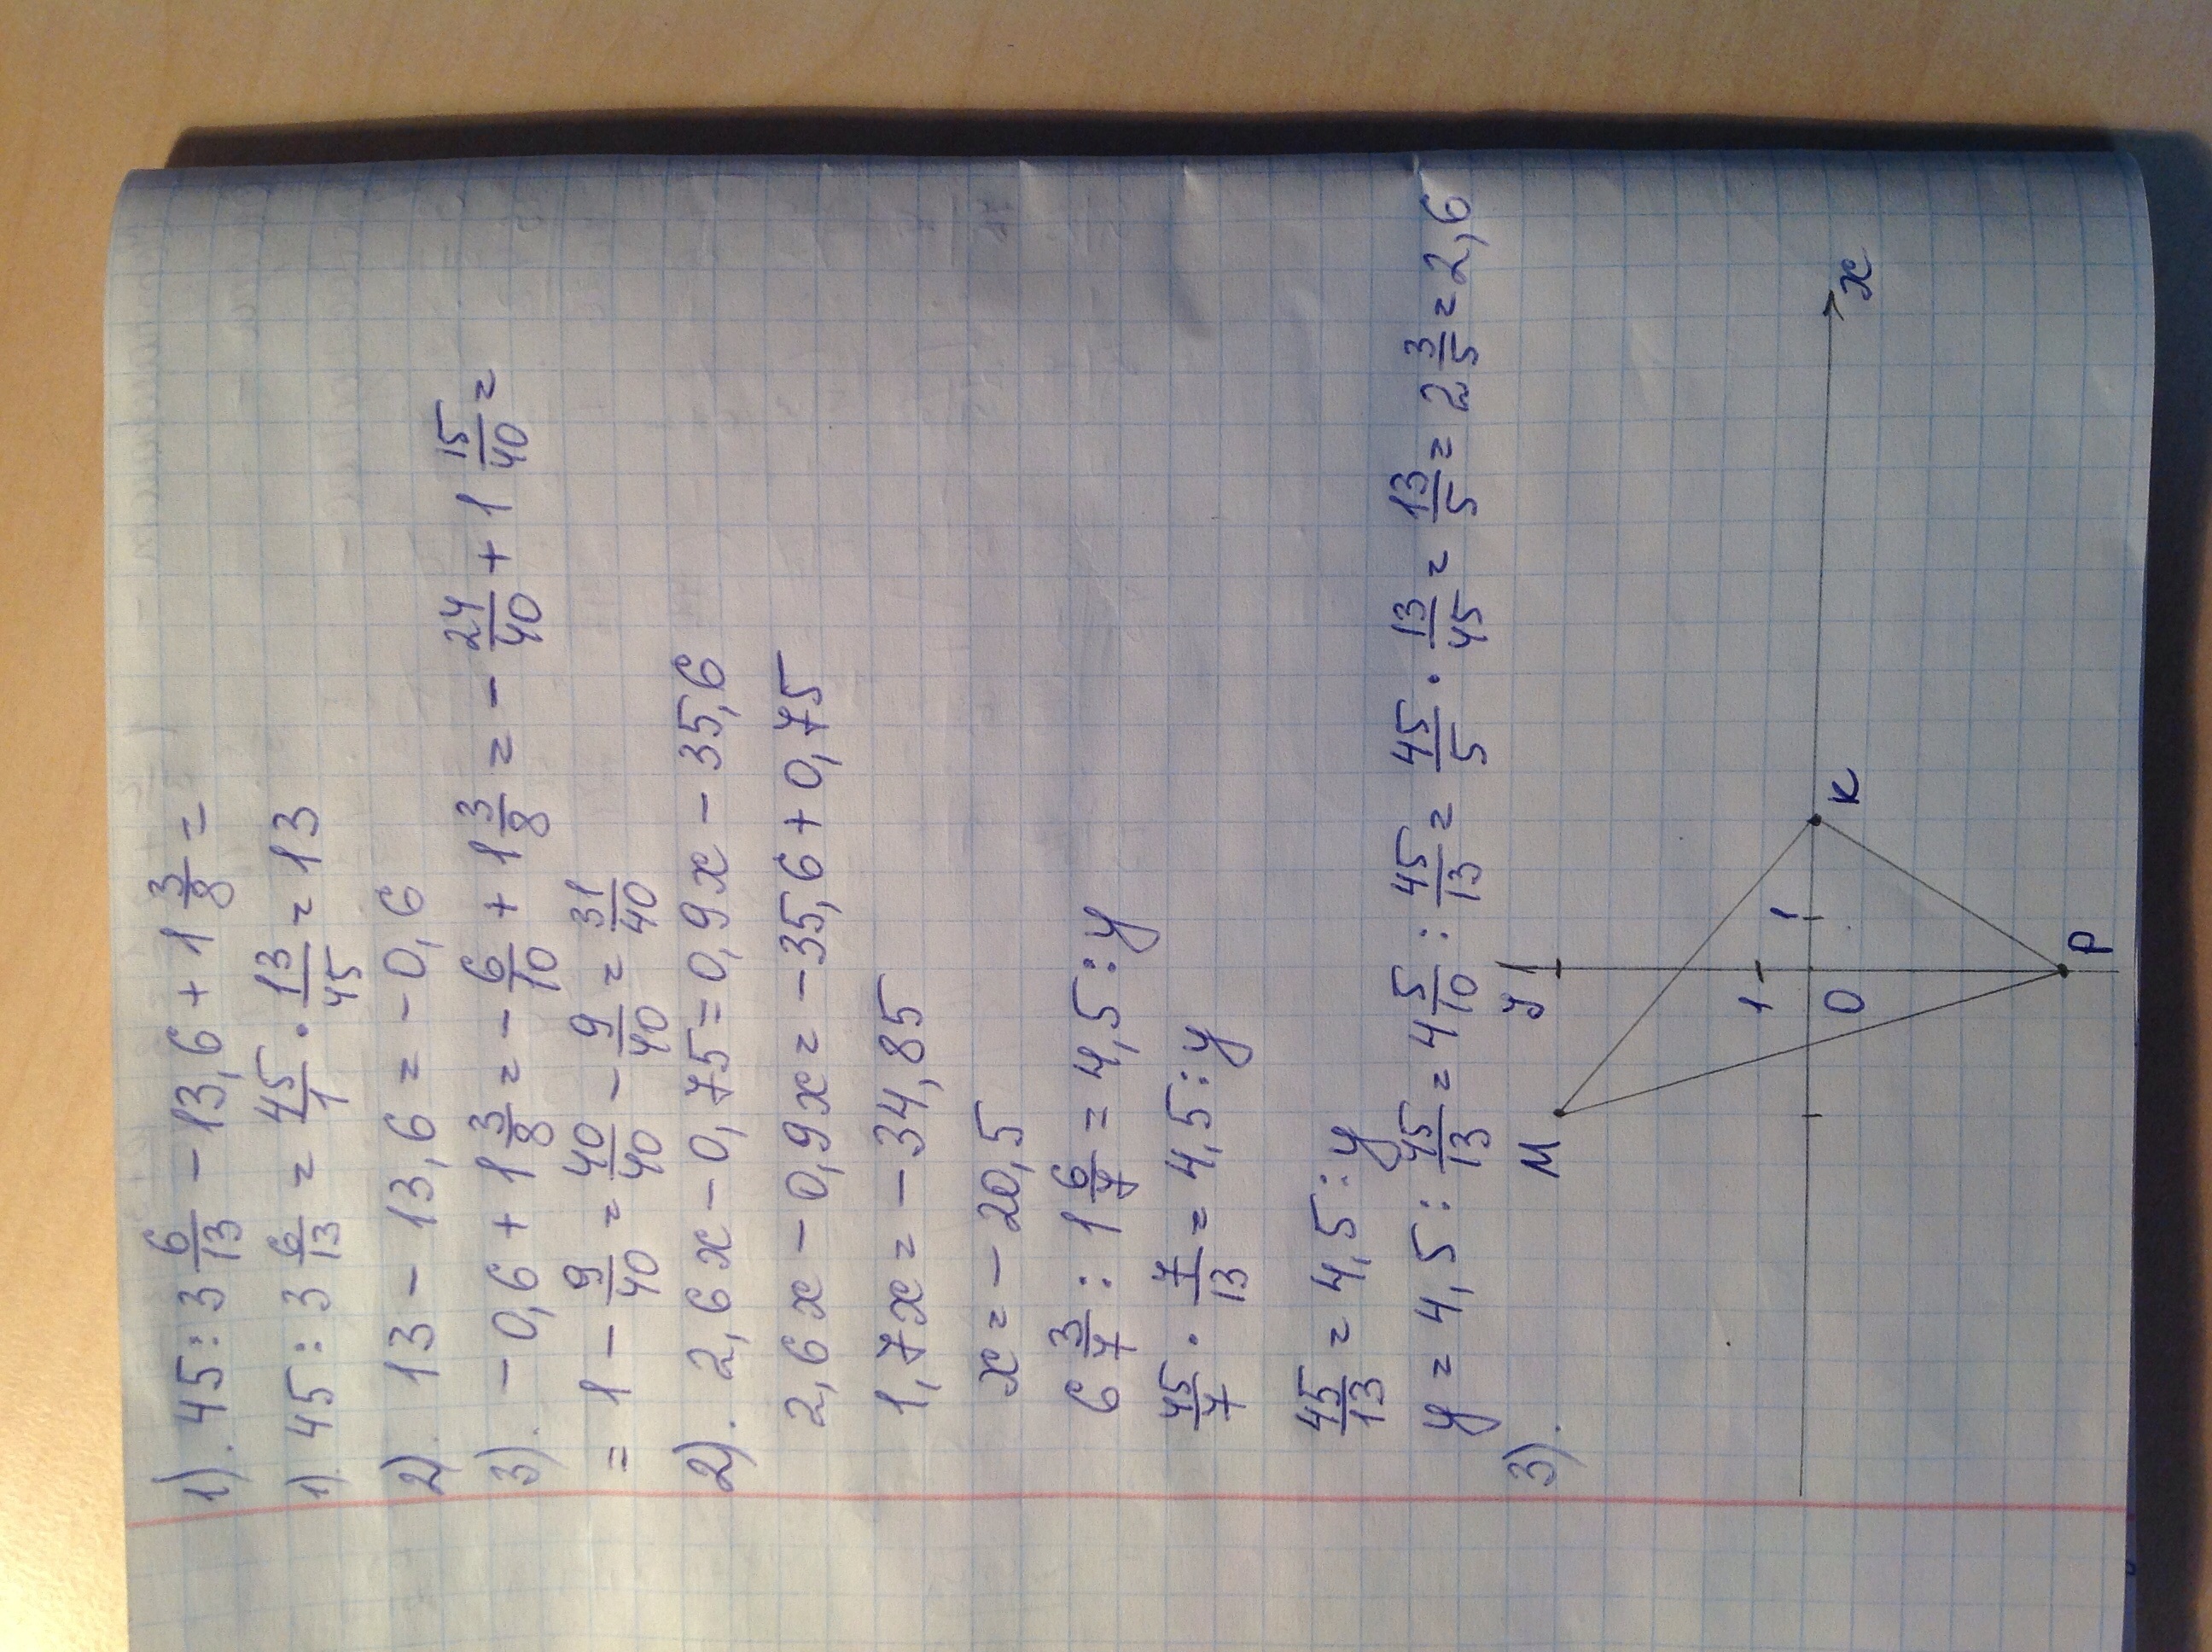 1). 45 : 3 6/13 - 13,6 + 1 3/8 =
1). 45 : 3 6/13 = 45/1 · 13/45 = 13
2). 13 - 13,6 = -0,6
3). -0,6 + 1 3/8 = -6/10 + 1 3/8 = -24/40 + 1 15/40 =
= 1 - 9/40 = 40/40 - 9/40 = 31/40
2). 2,6x - 0,75 = 0,9x - 35,6
2,6x - 0,9x = -35,6 + 0,75
1,7x = -34,85
x = -20,5
6 3/7 : 1 6/7 = 4,5 : y
45/7 · 7/13 = 4,5 : y
45/13 = 4,5 : y
y = 4,5 : 45/13 = 4 5/10 : 45/13 = 45/5 · 13/45 = 13/5 = 2 3/5 = 2,6
3).
y
M
1
1
0
K
x
P